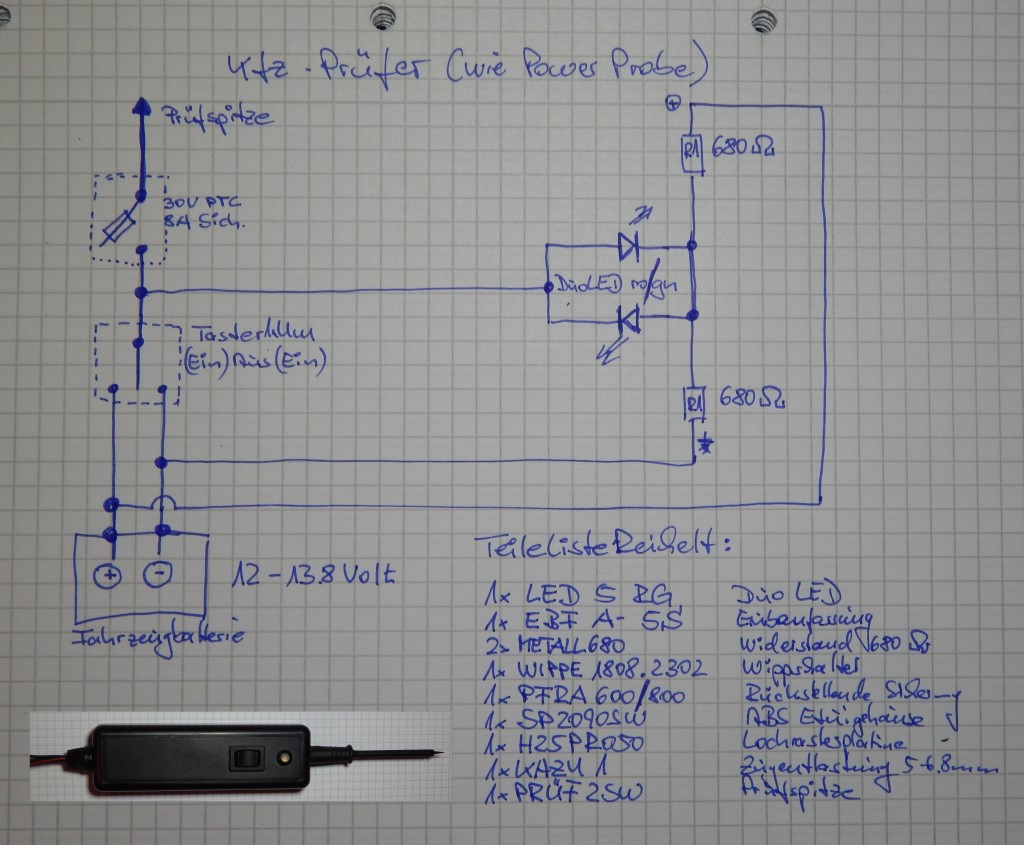 Kfz-Prüfer (wie Power Probe)
Prüfspitze
30V PTC
8A Sich.
+
R1 680Ω
DuoLED ro/gn
(Ein) Aus (Ein)
R1 680Ω
+ -
12-13.8 Volt
Fahrzeugbatterie
Teileliste Reichelt:
1x LED 5 RG Duo LED
1x EBF A-5S Einbaufassung
2x METALL 680 Widerstand 680Ω
1x WIPPE 1808.2302 Wippschalter
1x PFRA 600/800 Rückstellende
1x SP2090SW ABS
1x H25PR050 Lochrasterplatine
1x KAZU 1 Zugentlastung 5-6.8mm
1x PRÜF 2SW Prüfspitze